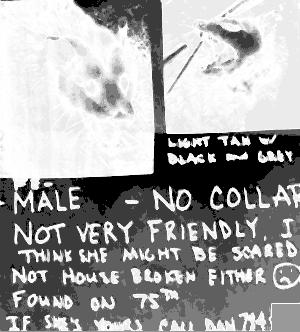 LIGHT TAN W/
BLACK AND GREY
- MALE - NO COLLAR
NOT VERY FRIENDLY I
THINK SHE MIGHT BE SCARED
NOT HOUSE BROKEN EITHER
FOUND ON 75TH
IF SHE'S YOURS CALL DAN 714